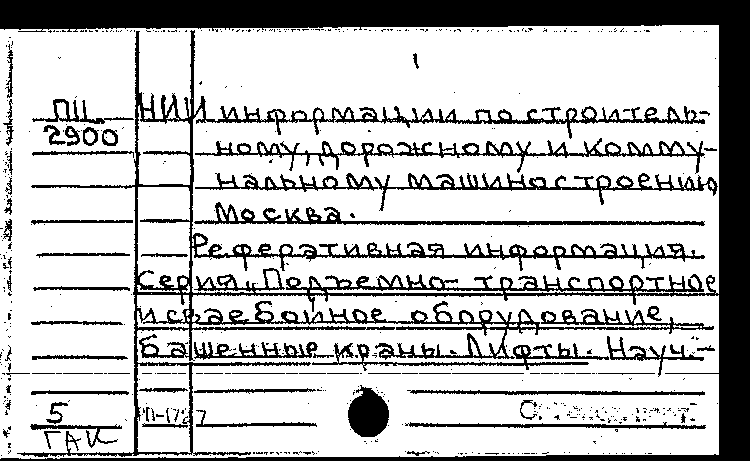 1
ПЦ
2900
НИИ информации по строитель-
ному, дорожному и комму-
нальному машиностроению
Москва.
Реферативная информация.
Серия „Подъемно- транспортное
и сваебойное оборудование,
башенные краны. Лифты. Науч.-
5
ГАК
РП-1727